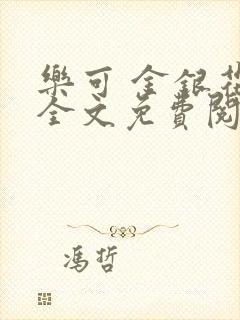 樂可 金銀花
全文免費閱
馮哲